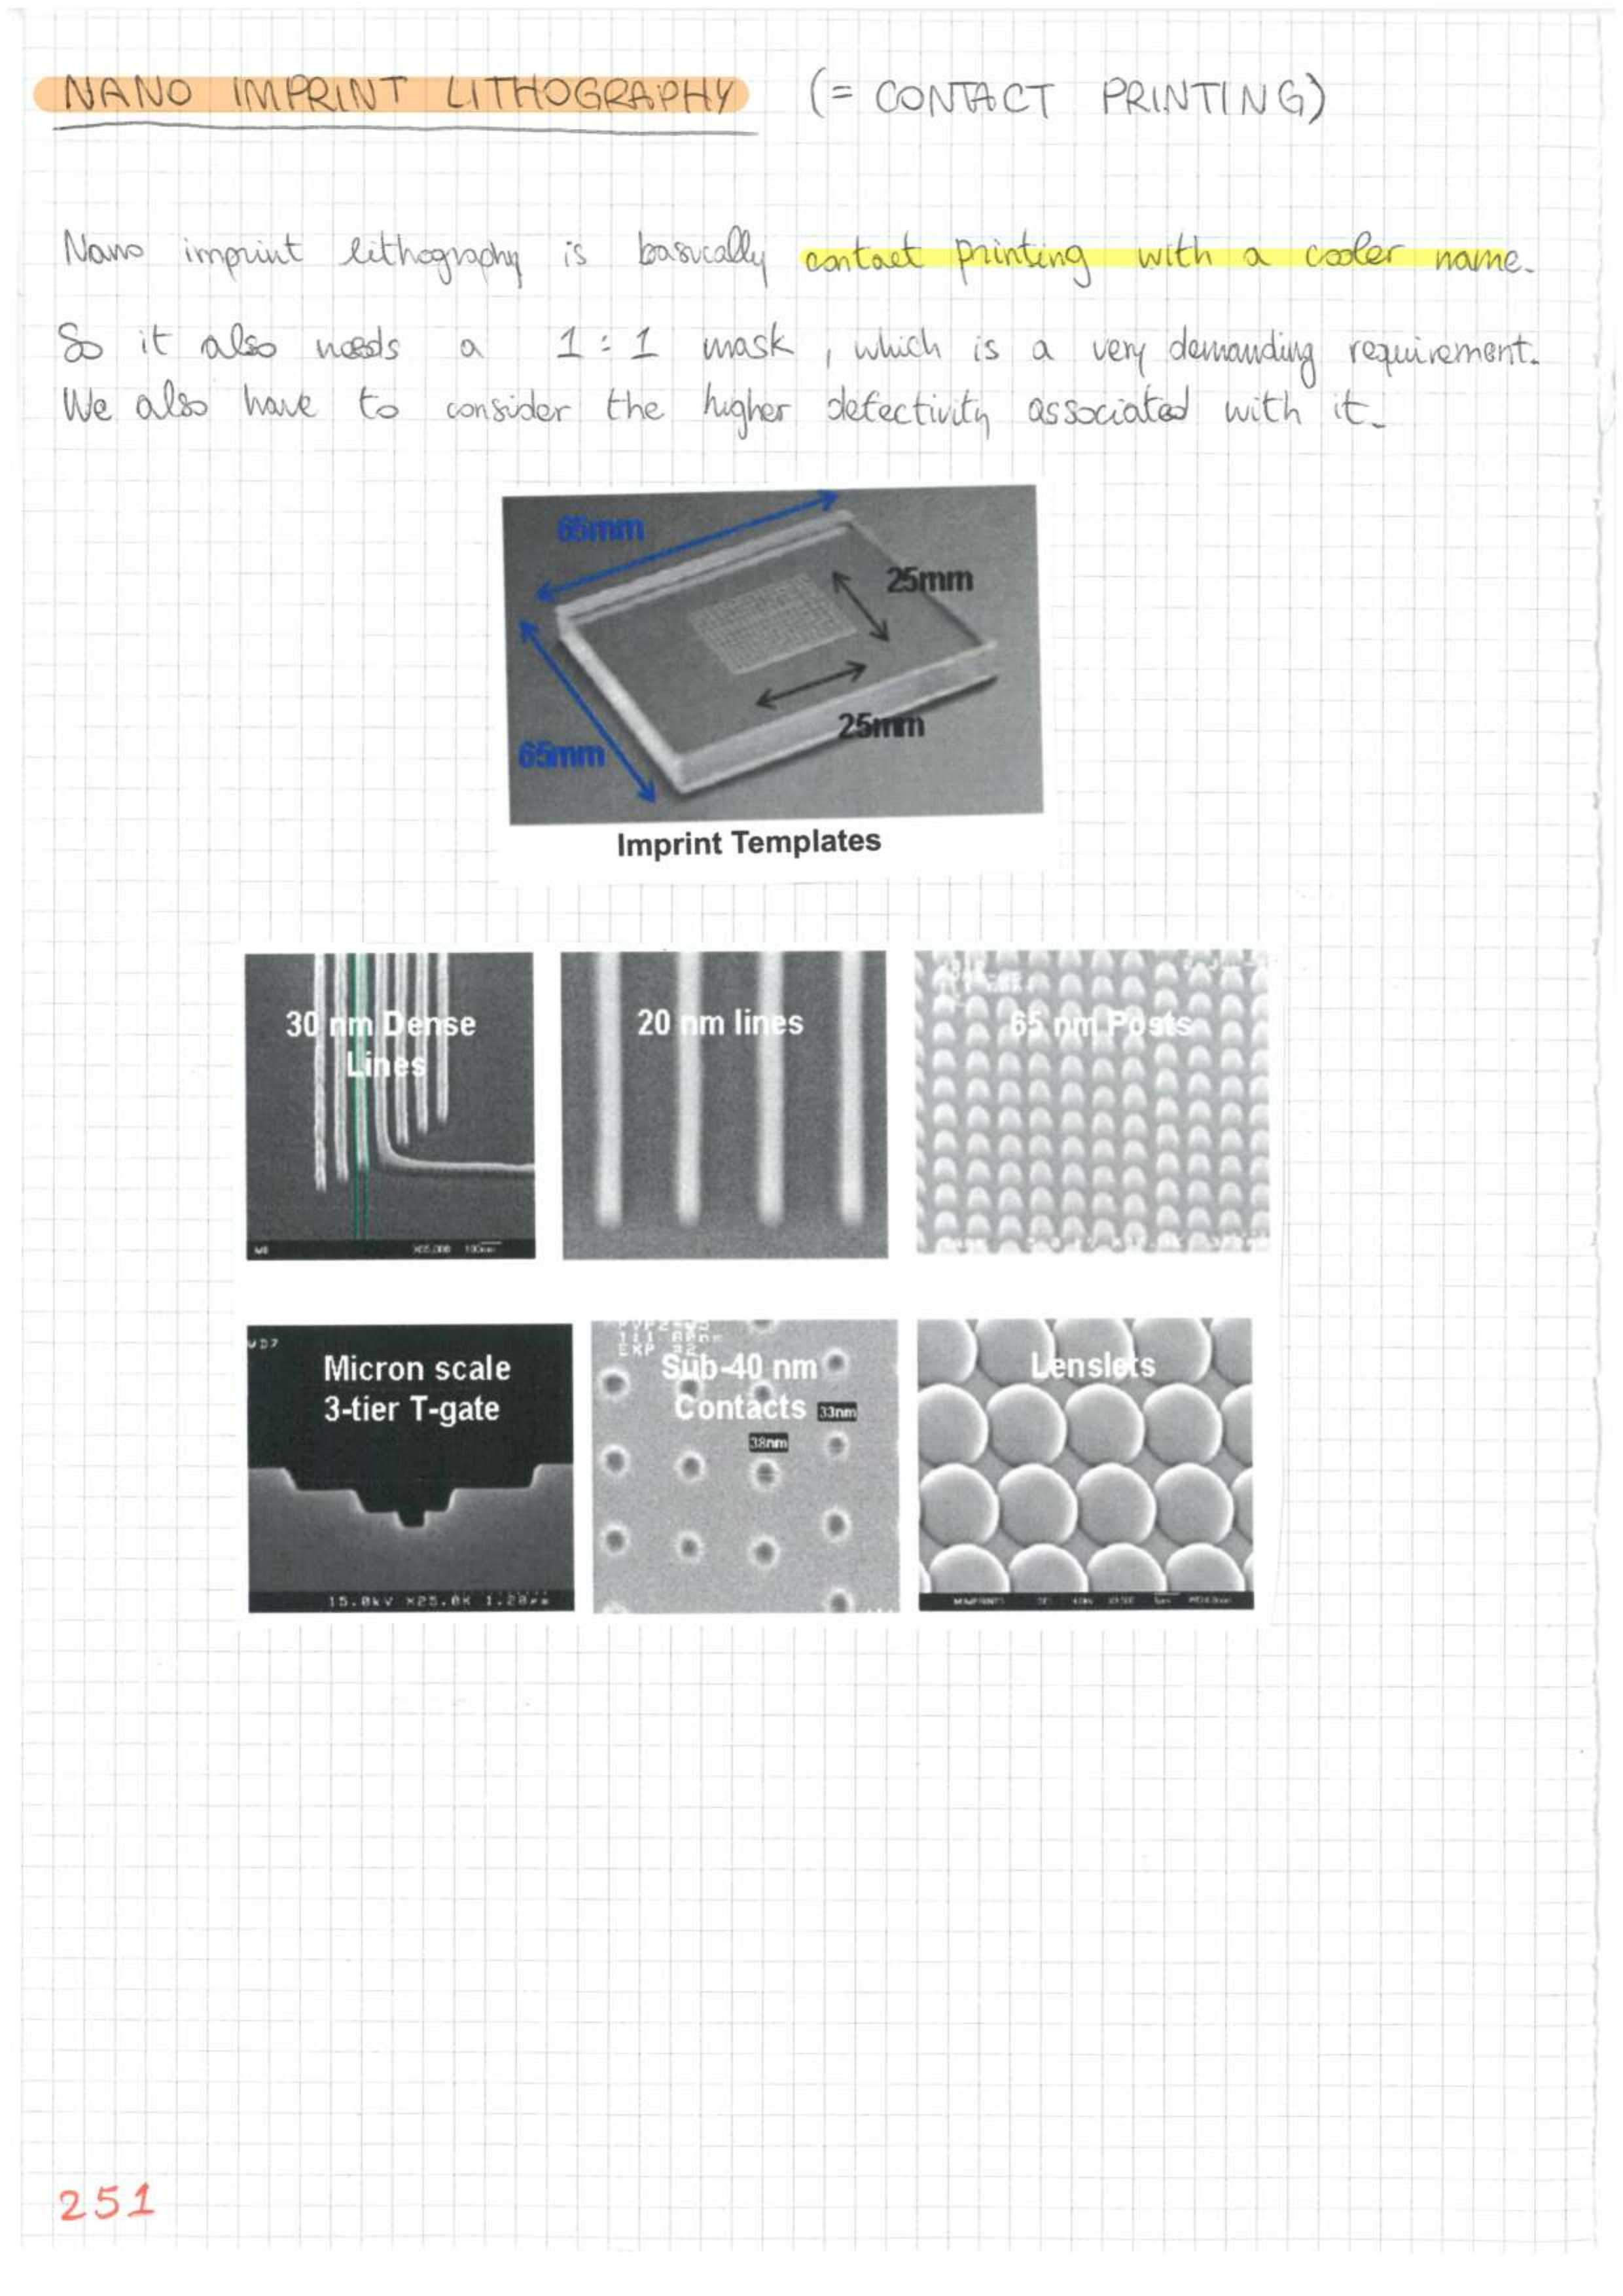 NANO IMPRINT LITHOGRAPHY (= CONTACT PRINTING)
Nano imprint lithography is basically contact printing with a cooler name.
So it also needs a 1:1 mask, which is a very demanding requirement.
We also have to consider the higher defectivity associated with it.
65mm
25mm
25mm
65mm
Imprint Templates
30 nm Dense
Lines
20 nm lines
65 nm Posts
Micron scale
3-tier T-gate
15.0kV X25.0K 1.20µm
Sub-40 nm
Contacts
33nm
38nm
Lenslets
251